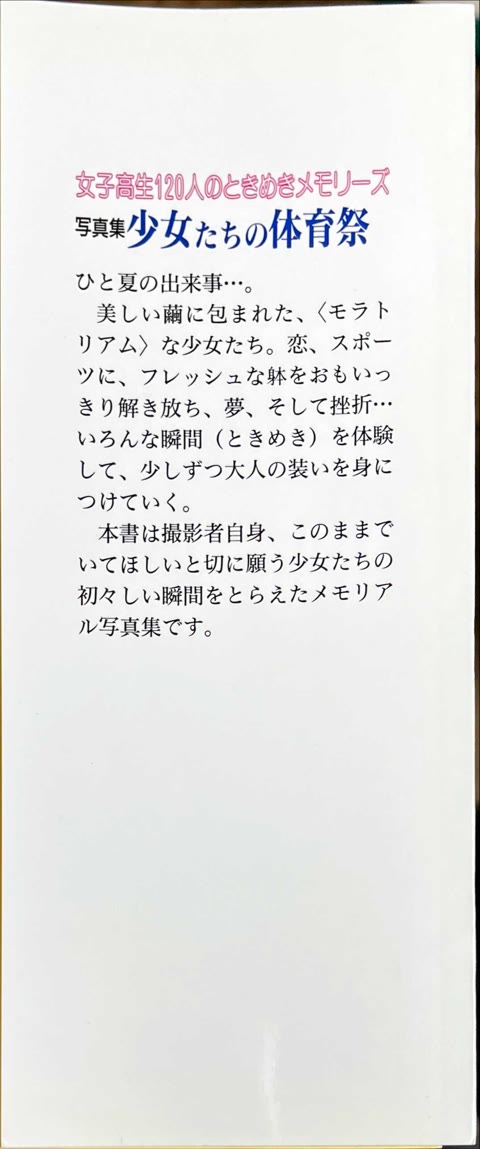 女子高生120人のときめきメモリーズ
写真集少女たちの体育祭
ひと夏の出来事…。
美しい繭に包まれた、〈モラト
リアム〉な少女たち。恋、スポー
ツに、フレッシュな躰をおもいっ
きり解き放ち、夢、そして挫折…
いろんな瞬間（ときめき）を体験
して、少しずつ大人の装いを身に
つけていく。
本書は撮影者自身、このままで
いてほしいと切に願う少女たちの
初々しい瞬間をとらえたメモリア
ル写真集です。